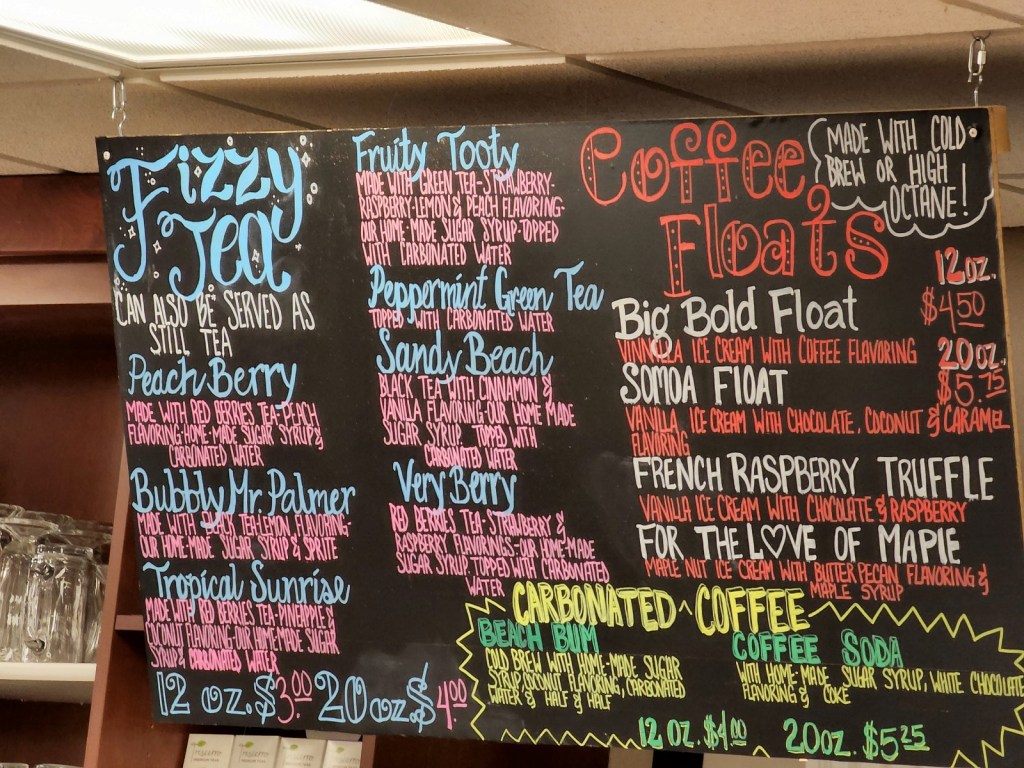 Fizzy
Tea
CAN ALSO BE SERVED AS
STILL TEA
Peach Berry
MADE WITH RED BERRIES TEA-PEACH
FLAVORING-HOME-MADE SUGAR SYRUP &
CARBONATED WATER
Bubbly Mr. Palmer
MADE WITH BLACK TEA-LEMON FLAVORING-
OUR HOME-MADE SUGAR SYRUP & SPRITE
Tropical Sunrise
MADE WITH RED BERRIES TEA-PINEAPPLE &
COCONUT FLAVORING-OUR HOME-MADE SUGAR
SYRUP & CARBONATED WATER
12 oz. $3.00 20 oz. $4.00
Fruity Tooty
MADE WITH GREEN TEA-STRAWBERRY-
RASPBERRY-LEMON & PEACH FLAVORING-
OUR HOME-MADE SUGAR SYRUP-TOPPED
WITH CARBONATED WATER
Peppermint Green Tea
TOPPED WITH CARBONATED WATER
Sandy Beach
BLACK TEA WITH CINNAMON &
VANILA FLAVORING-OUR HOME MADE
SUGAR SYRUP TOPPED WITH
CARBONATED WATER
Very Berry
RED BERRIES TEA-STRAWBERRY &
RASPBERRY FLAVORINGS-OUR HOME-MADE
SUGAR SYRUP TOPPED WITH CARBONATED
WATER
Coffee
Floats
MADE WITH COLD
BREW OR HIGH
OCTANE!
12 oz.
$4.50
20 oz.
$5.75
Big Bold Float
VINNILLA ICE CREAM WITH COFFEE FLAVORING
SOMOA FLOAT
VANILLA ICE CREAM WITH CHOCOLATE, COCONUT & CARAMEL
FLAVORING
FRENCH RASPBERRY TRUFFLE
VANILLA ICE CREAM WITH CHOCOLATE & RASPBERRY
FOR THE L♡VE OF MAPLE
MAPLE NUT ICE CREAM WITH BUTTER PECAN FLAVORING &
MAPLE SYRUP
CARBONATED COFFEE
BEACH BUM
COLD BREW WITH HOME-MADE SUGAR
SYRUP, COCONUT FLAVORING, CARBONATED
WATER & HALF & HALF
COFFEE SODA
WITH HOME-MADE SUGAR SYRUP, WHITE CHOCOLATE
FLAVORING & COKE
12 OZ. $4.00 20 OZ. $5.25